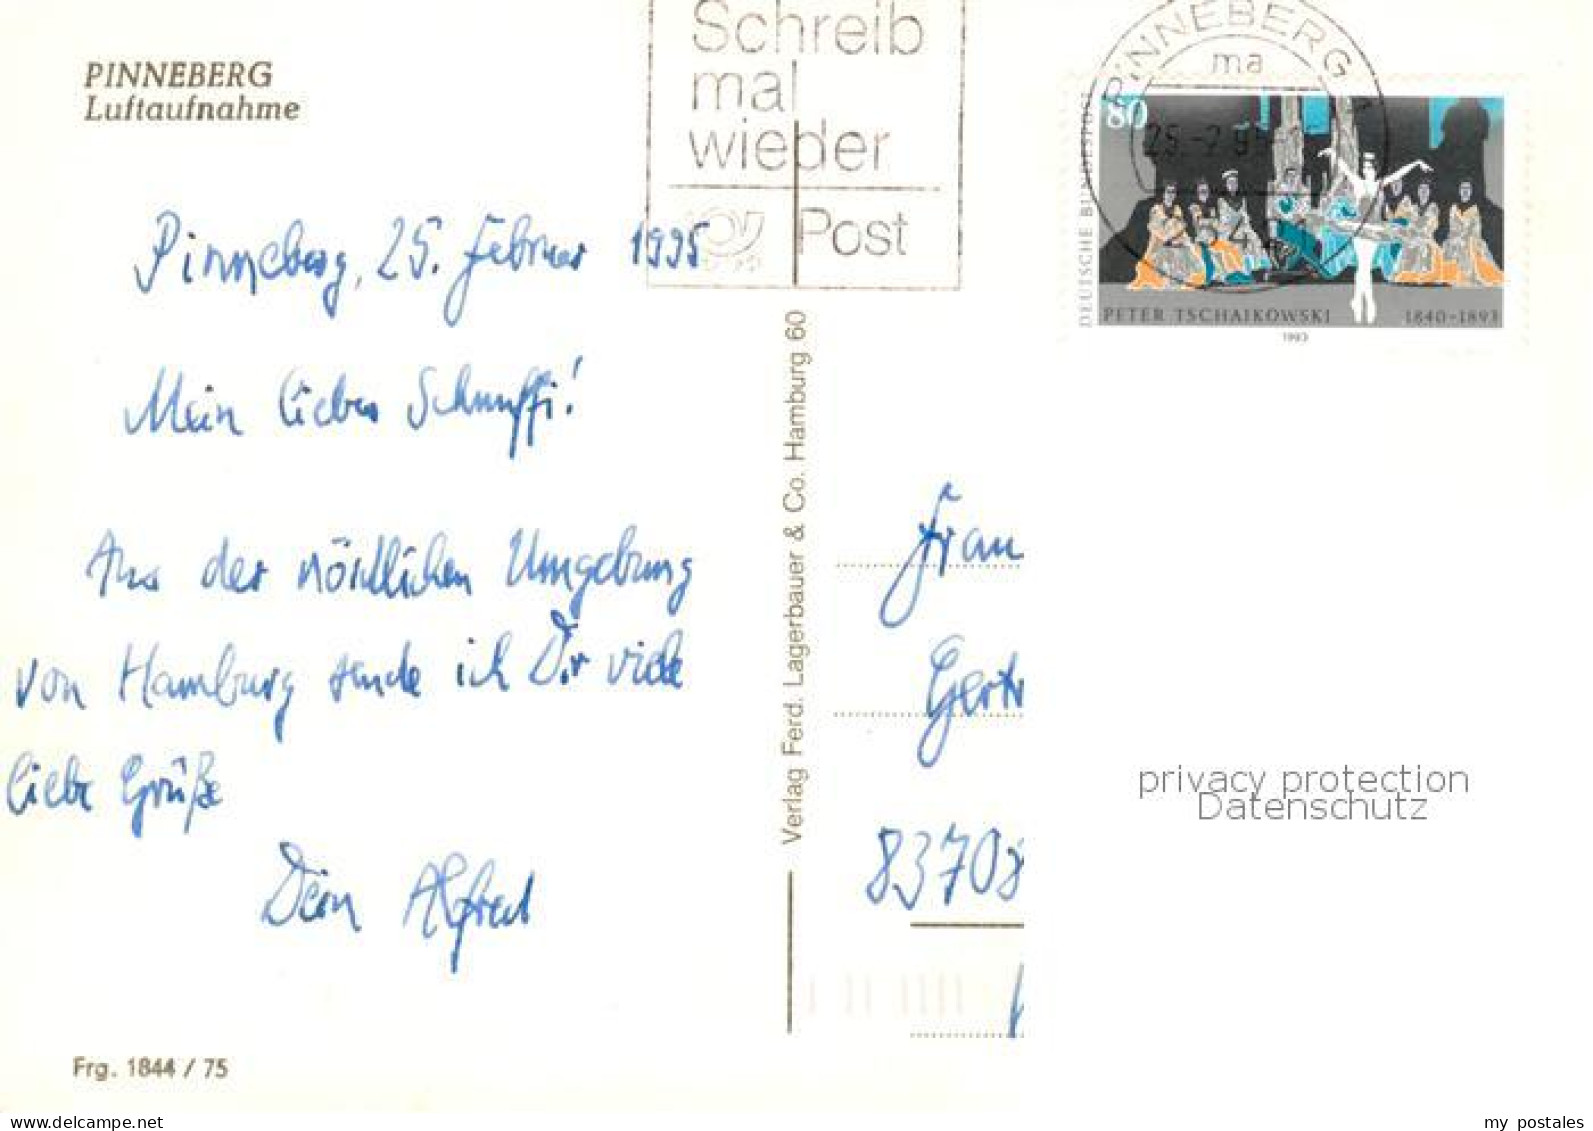 PINNEBERG
Luftaufnahme
Schreib
mal
wieder
Post
PINNEBERG
ma
80
DEUTSCHE BUNDESPOST
PETER TSCHAIKOWSKI 1840-1893
1993
Pinneberg, 25. Februar 1995
Mein lieber Schnuffi!
Aus der nördlichen Umgebung
von Hamburg sende ich Dir viele
liebe Grüße
Dein Alfred
Verlag Ferd. Lagerbauer & Co. Hamburg 60
Frau
Gertr
83708
privacy protection
Datenschutz
Frg. 1844 / 75
my postales